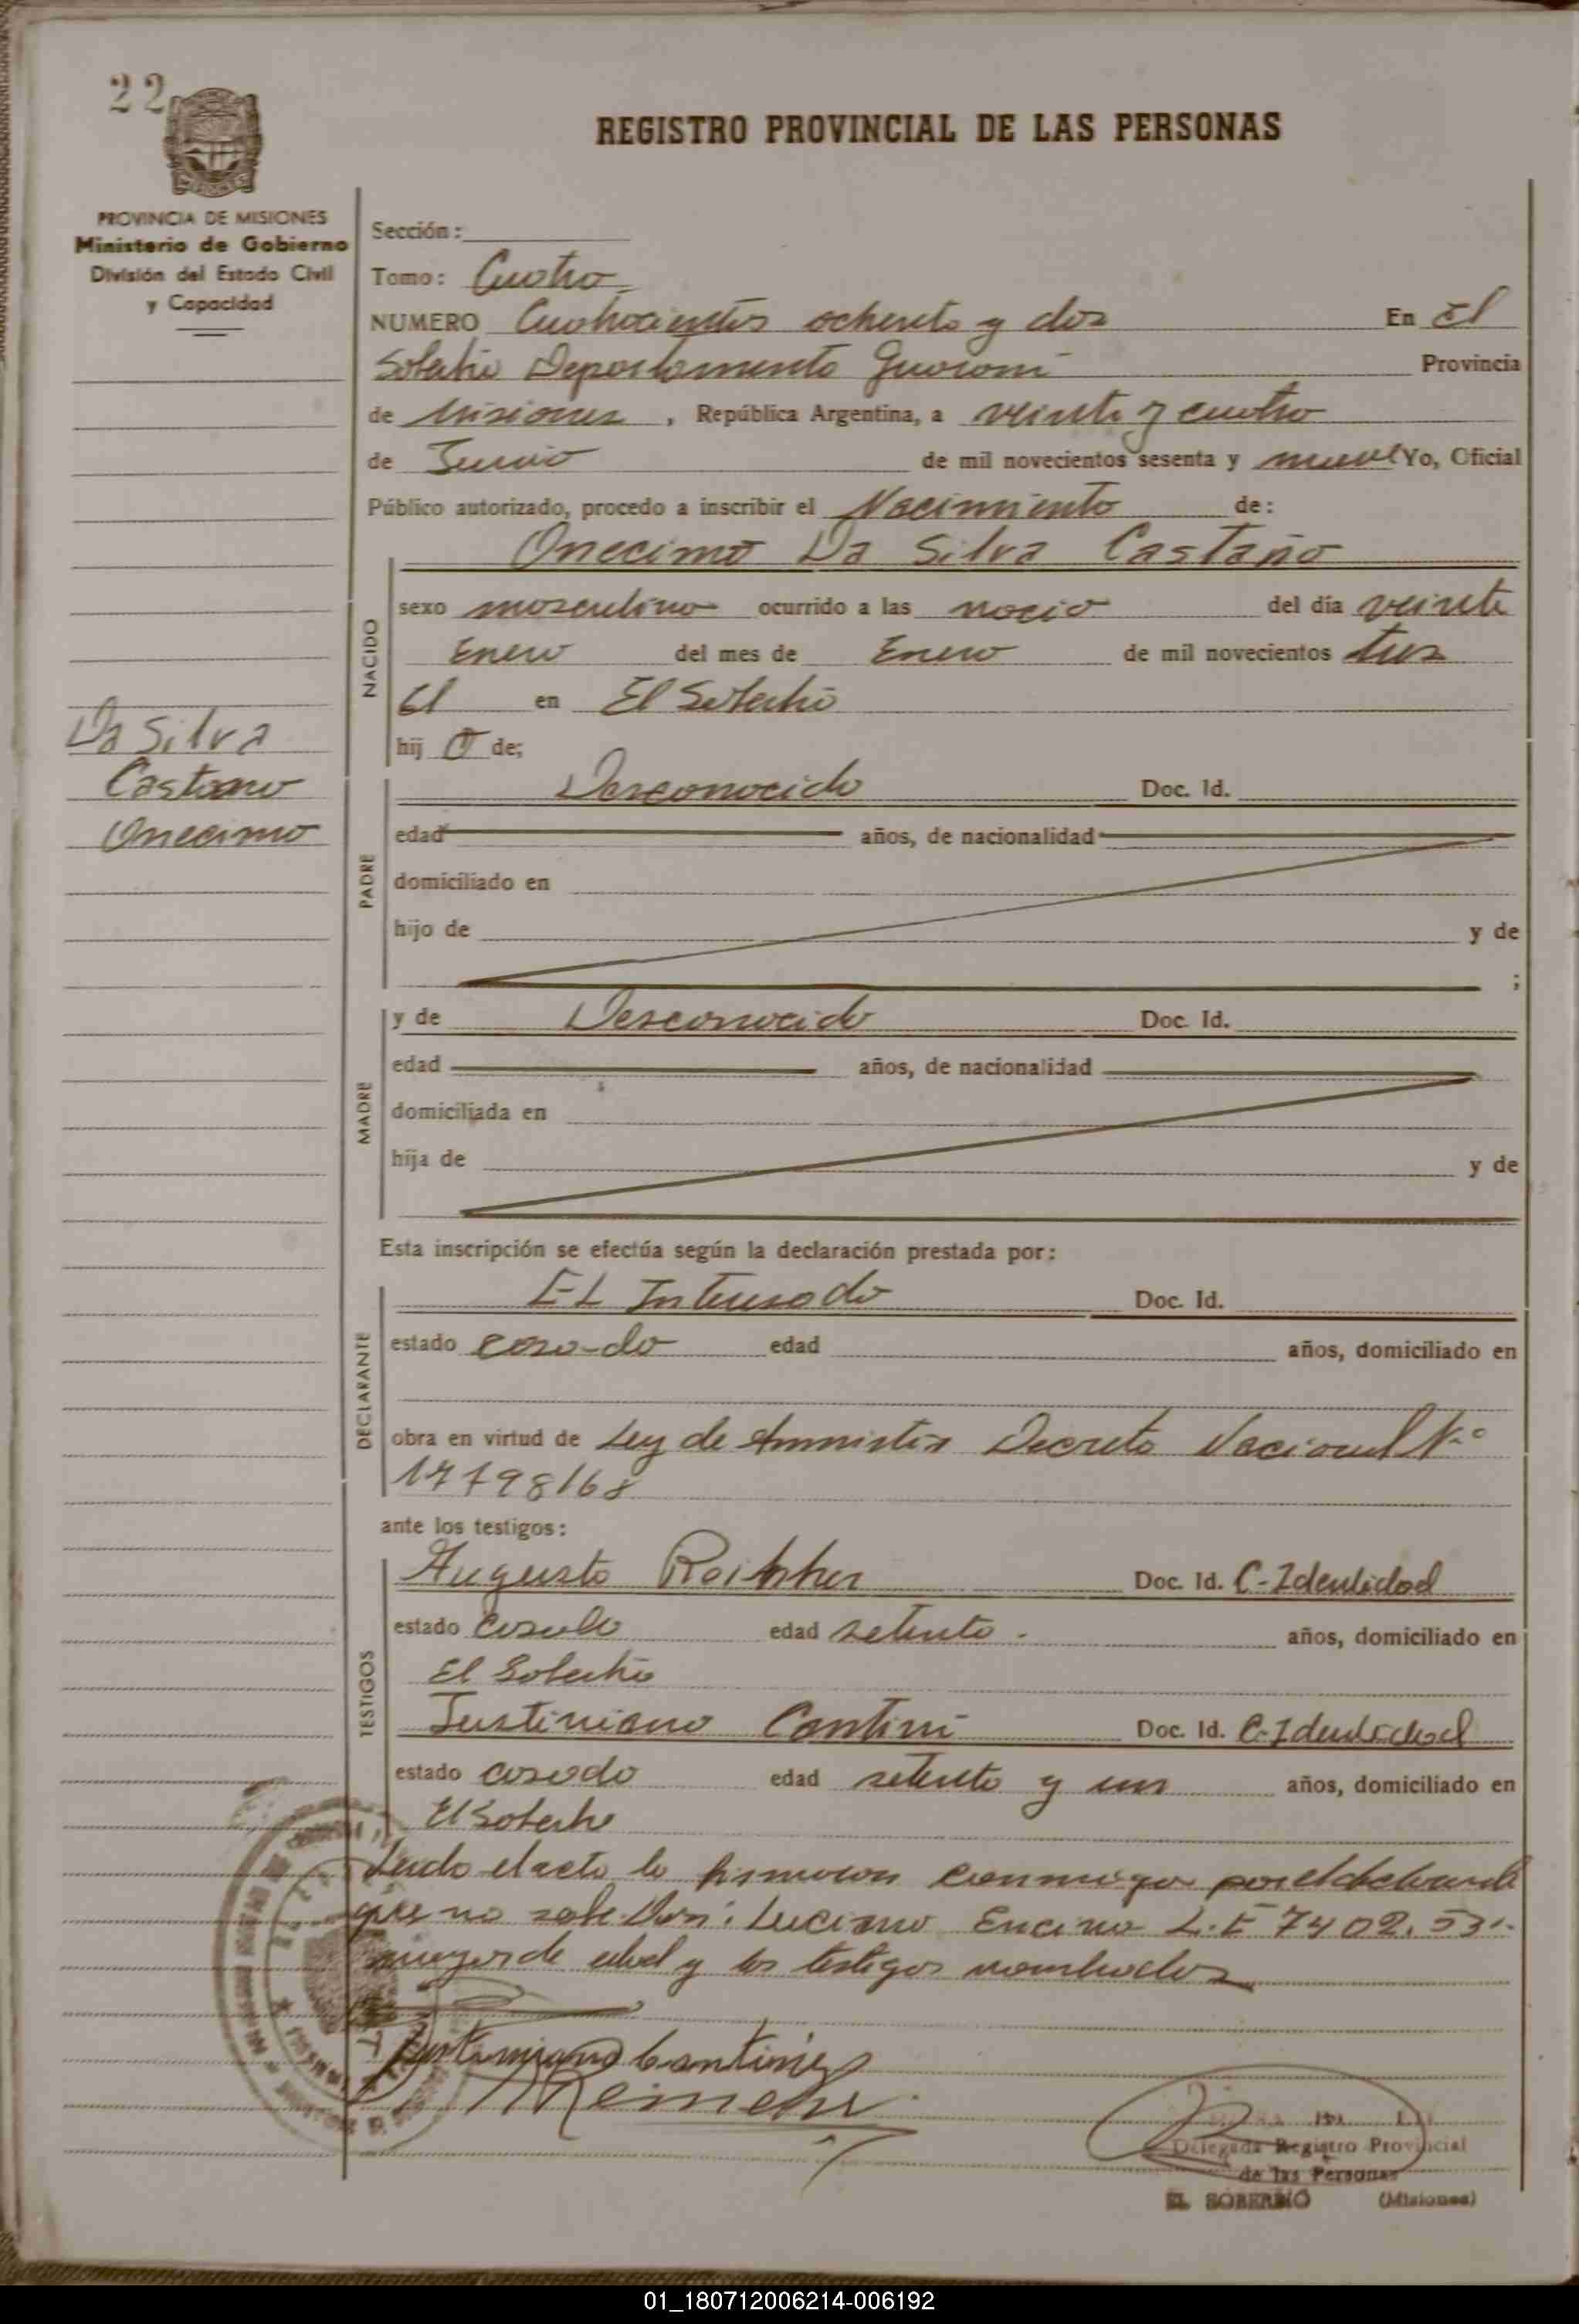 22
REGISTRO PROVINCIAL DE LAS PERSONAS
PROVINCIA DE MISIONES
Ministerio de Gobierno
División del Estado Civil
y Capacidad
Sección:
Tomo: Cuatro
NUMERO Cuatrocientos ochenta y dos En El
Soberbio Departamento Guarani Provincia
de Misiones, República Argentina, a veinte y cuatro
de Junio de mil novecientos sesenta y nueve Yo, Oficial
Público autorizado, procedo a inscribir el Nacimiento de:
Onecimo Da Silva Castaño
NACIDO
sexo masculino ocurrido a las nacio del día veinte
Enero del mes de Enero de mil novecientos tres
El en El Soberbio
hij o de;
Da Silva
Castano
Onecimo
PADRE
Desconocido Doc. Id.
edad años, de nacionalidad
domiciliado en
hijo de y de
;
MADRE
y de Desconocido Doc. Id.
edad años, de nacionalidad
domiciliada en
hija de y de
Esta inscripción se efectúa según la declaración prestada por:
DECLARANTE
EL Interesado Doc. Id.
estado casado edad años, domiciliado en
obra en virtud de Ley de Amnistia Decreto Nacional N.º
17798/68
ante los testigos:
TESTIGOS
Augusto Doc. Id. C-Identidad
estado casado edad setenta. años, domiciliado en
El Soberbio
Justiniano Cantini Doc. Id. C-Identidad
estado casado edad setenta y un años, domiciliado en
El Soberbio
Leido el acta lo firmaron conmigo por el declarante
que no sabe Luciano Encina L.E 7402.53
mayor de edad y los testigos nombrados
Delegada Registro Provincial
de las Personas
EL SOBERBIO (Misiones)
01_180712006214-006192